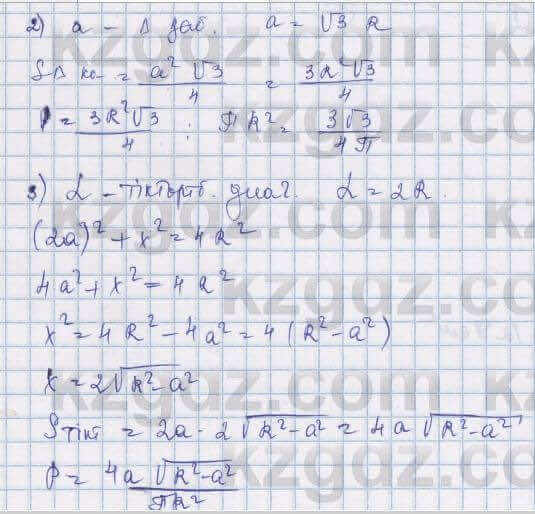 2) a - Δ қаб. a = √3 R
SΔ = a² √3 / 4 = 3R²√3 / 4
P = 3R²√3 / 4 : πR² = 3√3 / 4π
3) d - тіктөртб. диаг. d = 2R.
(2a)² + x² = 4R²
4a² + x² = 4R²
x² = 4R² - 4a² = 4 (R² - a²)
x = 2√R² - a²
Sтікт = 2a · 2 √R² - a² = 4a √R² - a²
P = 4a √R² - a² / πR²
kzgdz.com